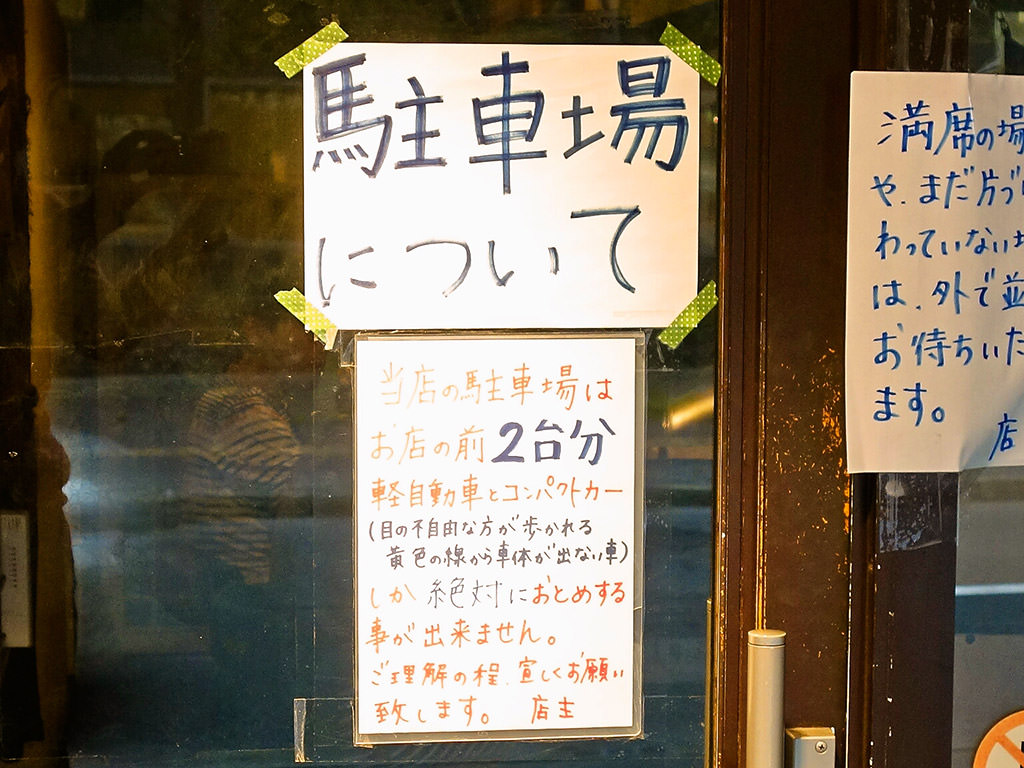 駐車場
について
当店の駐車場は
お店の前2台分
軽自動車とコンパクトカー
(目の不自由な方が歩かれる
黄色の線から車体が出ない車)
しか絶対におとめする
事が出来ません。
ご理解の程、宜しくお願い
致します。 店主
満席の場
や、まだ片づ
わっていない
は、外で並
お待ちいた
ます。
店